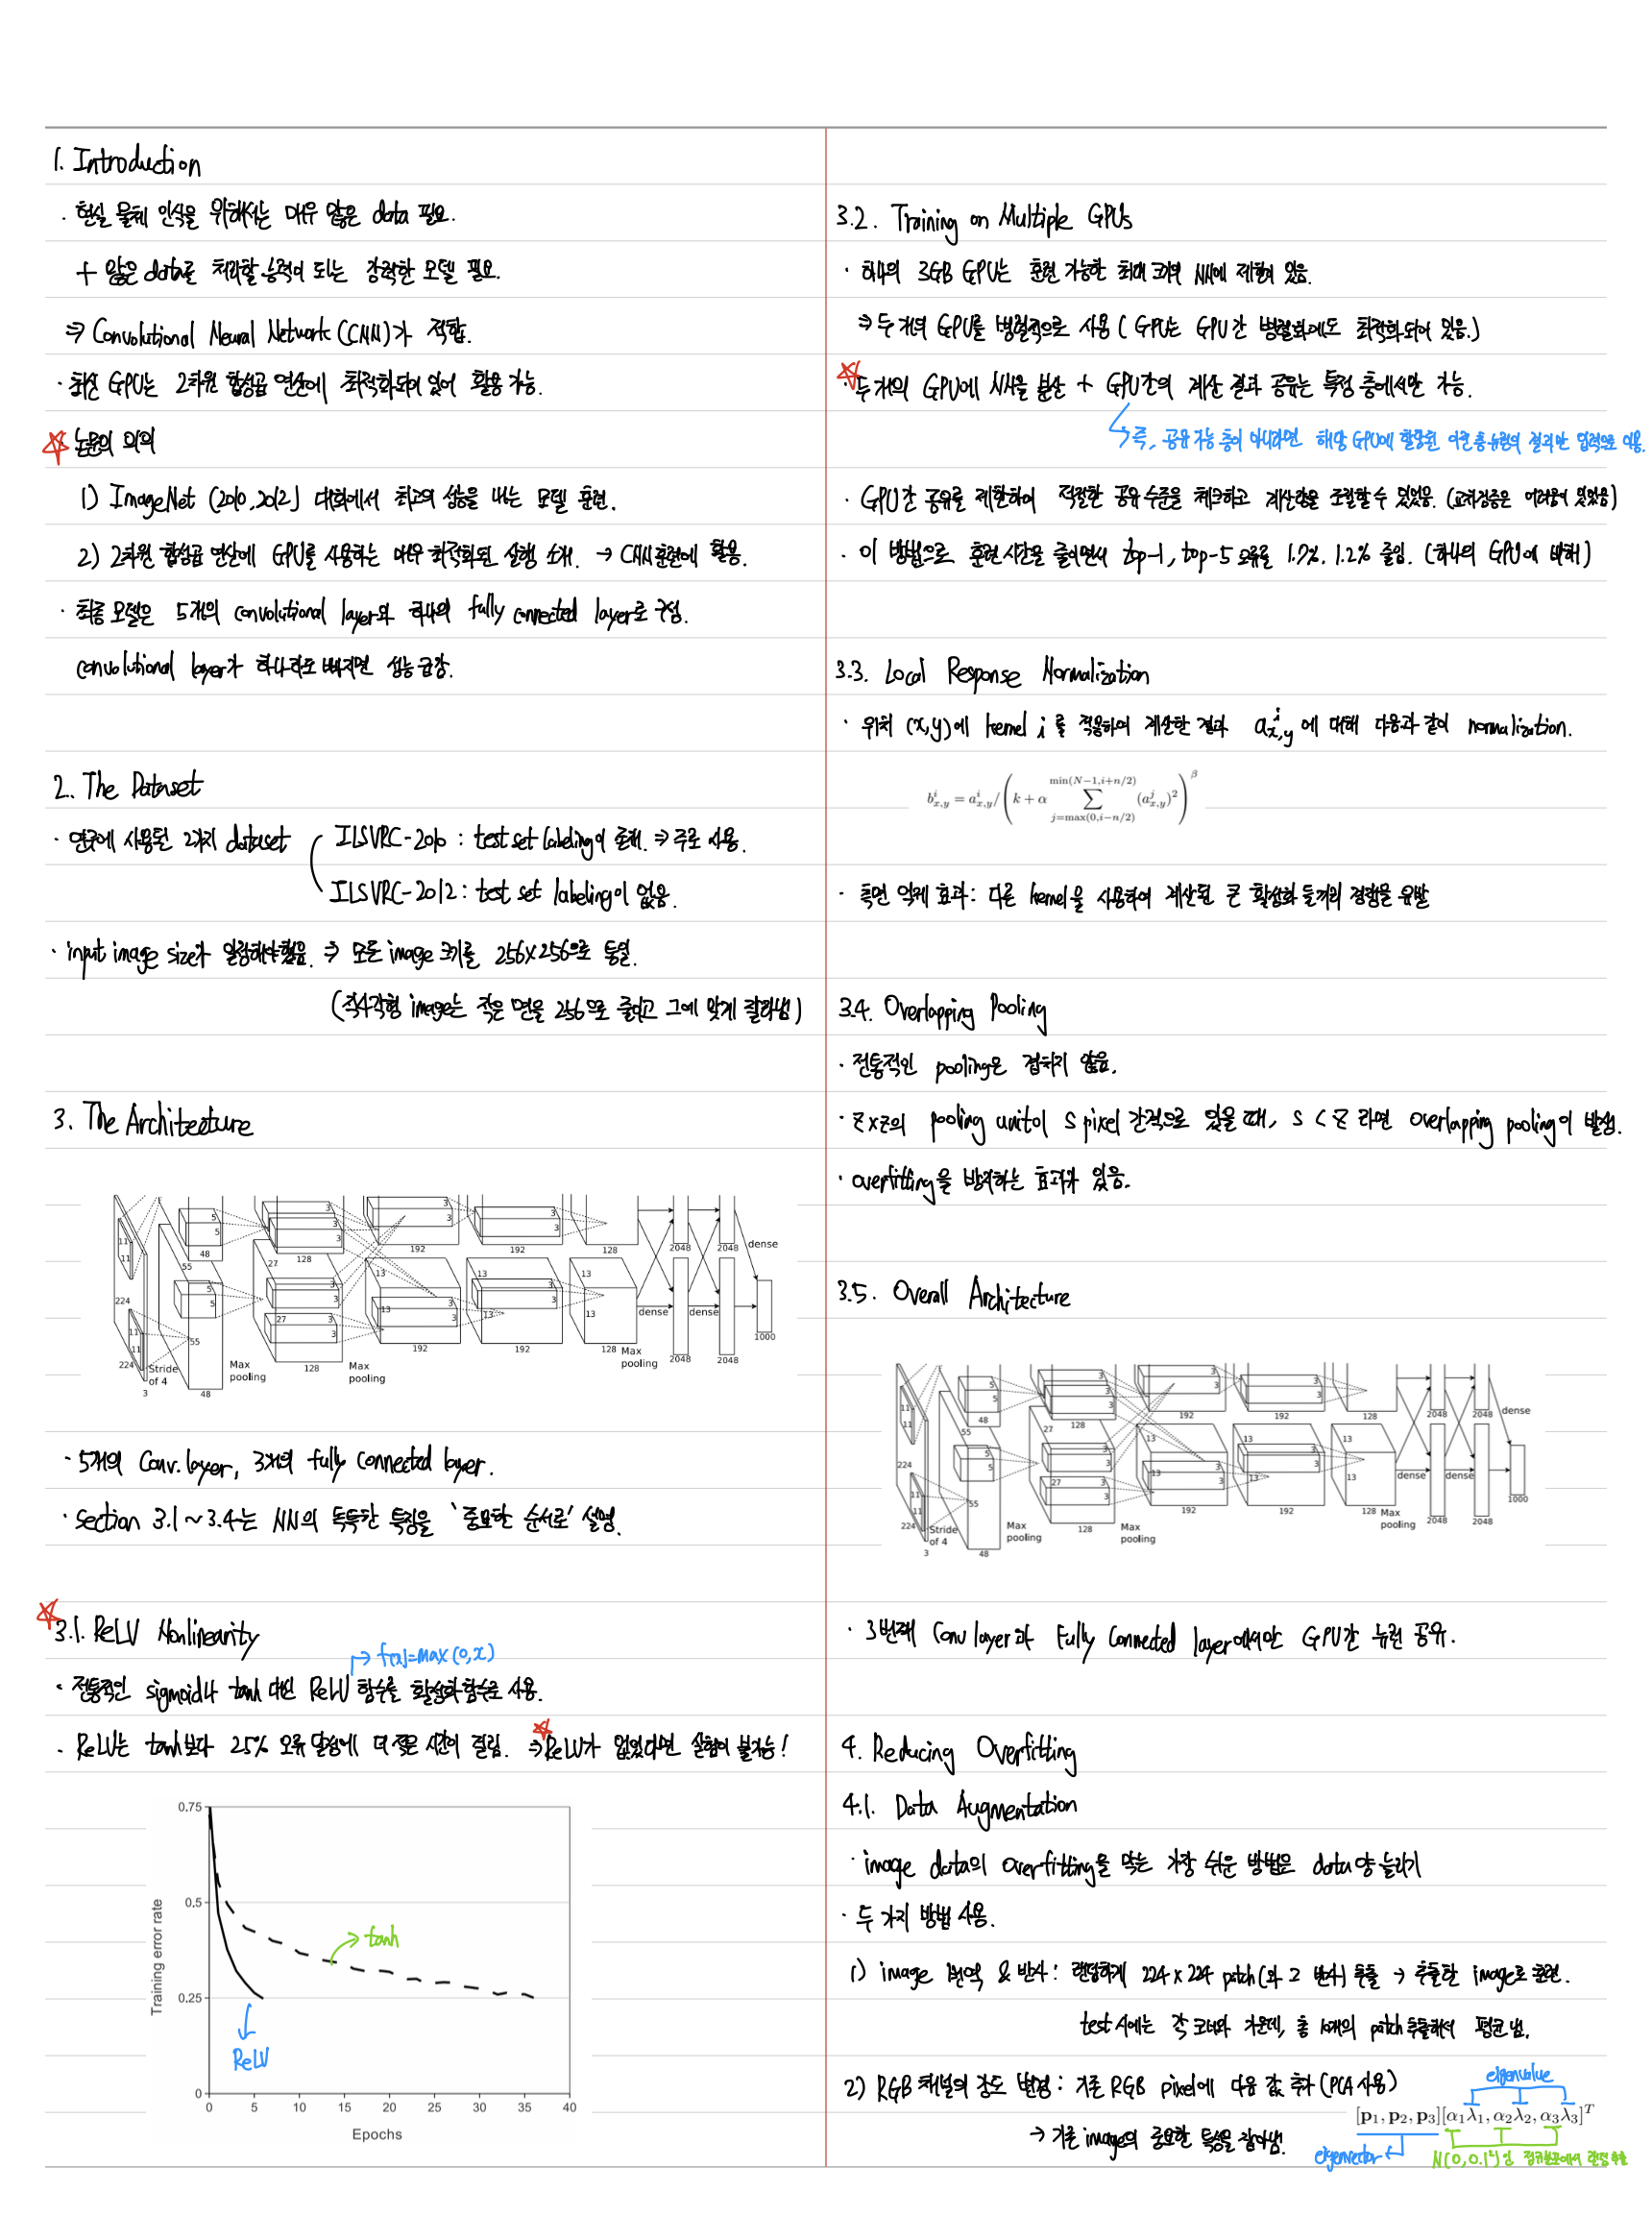 1. Introduction
· 현실 물체 인식을 위해서는 매우 많은 data 필요.
+ 많은 data를 처리할 능력이 되는 강력한 모델 필요.
⇒ Convolutional Neural Network (CNN)가 적합.
· 최신 GPU는 2차원 합성곱 연산에 최적화되어 있어 활용 가능.
☆ 논문의 의의
1) ImageNet (2010, 2012) 대회에서 최고의 성능을 내는 모델 훈련.
2) 2차원 합성곱 연산에 GPU를 사용하는 매우 최적화된 실행 소개. → CNN 훈련에 활용.
· 최종 모델은 5개의 convolutional layer와 하나의 fully connected layer로 구성.
convolutional layer가 하나라도 빠지면 성능 급감.
2. The Dataset
· 연구에 사용된 2가지 dataset
ILSVRC-2010 : test set labeling이 존재. ⇒ 주로 사용.
ILSVRC-2012 : test set labeling이 없음.
· input image size가 일정해야 했음. ⇒ 모든 image 크기를 256×256으로 통일.
(직사각형 image는 작은 면을 256으로 줄이고 그에 맞게 잘라냄)
3. The Architecture
11 11 5 5 48 55 27 128 3 3 192 3 3 192 3 3 128 2048 2048 dense
224 11 11 224 3 Stride of 4 55 5 5 48 Max pooling 27 3 3 128 Max pooling 13 13 3 3 192 13 13 3 3 192 13 13 128 Max pooling dense 2048 dense 2048 1000
· 5개의 Conv. layer, 3개의 fully connected layer.
· section 3.1 ~ 3.4는 NN의 독특한 특징을 '중요한 순서로' 설명.
☆ 3.1. ReLU Nonlinearity
→ f(x)=max(0,x)
· 전통적인 sigmoid나 tanh 대신 ReLU 함수를 활성화 함수로 사용.
· ReLU는 tanh보다 25% 오류 달성에 더 적은 시간이 걸림. ⇒ ☆ReLU가 없었다면 실험이 불가능!
Training error rate
0.75
0.5
0.25
0
tanh
ReLU
0 5 10 15 20 25 30 35 40
Epochs
3.2. Training on Multiple GPUs
· 하나의 3GB GPU는 훈련 가능한 최대 크기의 NN에 제한이 있음.
⇒ 두 개의 GPU를 병렬적으로 사용 (GPU는 GPU 간 병렬화에도 최적화되어 있음.)
☆ · 두 개의 GPU에 NN을 분산 + GPU간의 계산 결과 공유는 특정 층에서만 가능.
↳ 즉, 공유 가능 층이 아니라면 해당 GPU에 할당된 이전 층 뉴런의 결과만 입력으로 이용.
· GPU간 공유를 제한하여 적절한 공유 수준을 체크하고 계산량을 조절할 수 있었음. (교차검증은 어려움이 있었음)
· 이 방법으로 훈련 시간을 줄이면서 top-1, top-5 오류를 1.7%, 1.2% 줄임. (하나의 GPU에 비해)
3.3. Local Response Normalization
· 위치 (x,y)에 kernel i를 적용하여 계산한 결과 a^i_{x,y}에 대해 다음과 같이 normalization.
b^i_{x,y} = a^i_{x,y} / ( k + α ∑_{j=max(0,i−n/2)}^{min(N−1,i+n/2)} (a^j_{x,y})^2 )^β
· 측면 억제 효과: 다른 kernel을 사용하여 계산된 큰 활성화 들끼리 경쟁을 유발
3.4. Overlapping Pooling
· 전통적인 pooling은 겹치지 않음.
· z×z의 pooling unit이 s pixel 간격으로 있을 때, s < z 라면 overlapping pooling이 발생.
· overfitting을 방지하는 효과가 있음.
3.5. Overall Architecture
11 11 5 5 48 55 27 128 3 3 192 3 3 192 3 3 128 2048 2048 dense
224 11 11 224 3 Stride of 4 55 5 5 48 Max pooling 27 3 3 128 Max pooling 13 13 3 3 192 13 13 3 3 192 13 13 128 Max pooling dense 2048 dense 2048 1000
· 3번째 Conv layer과 Fully Connected layer에서만 GPU간 뉴런 공유.
4. Reducing Overfitting
4.1. Data Augmentation
· image data의 overfitting을 막는 가장 쉬운 방법은 data양 늘리기
· 두 가지 방법 사용.
1) image 번역 & 반사 : 랜덤하게 224×224 patch(와 그 반사) 추출 → 추출한 image로 훈련.
test 시에는 각 코너와 가운데, 총 10개의 patch 추출해서 평균 냄.
2) RGB 채널의 강도 변형 : 기존 RGB pixel에 다음 값 추가 (PCA 사용)
eigenvalue
[p1, p2, p3][α1λ1, α2λ2, α3λ3]^T
→ 기존 image의 중요한 특성을 잡아냄.
eigenvector
N(0, 0.1²)인 정규분포에서 랜덤 추출